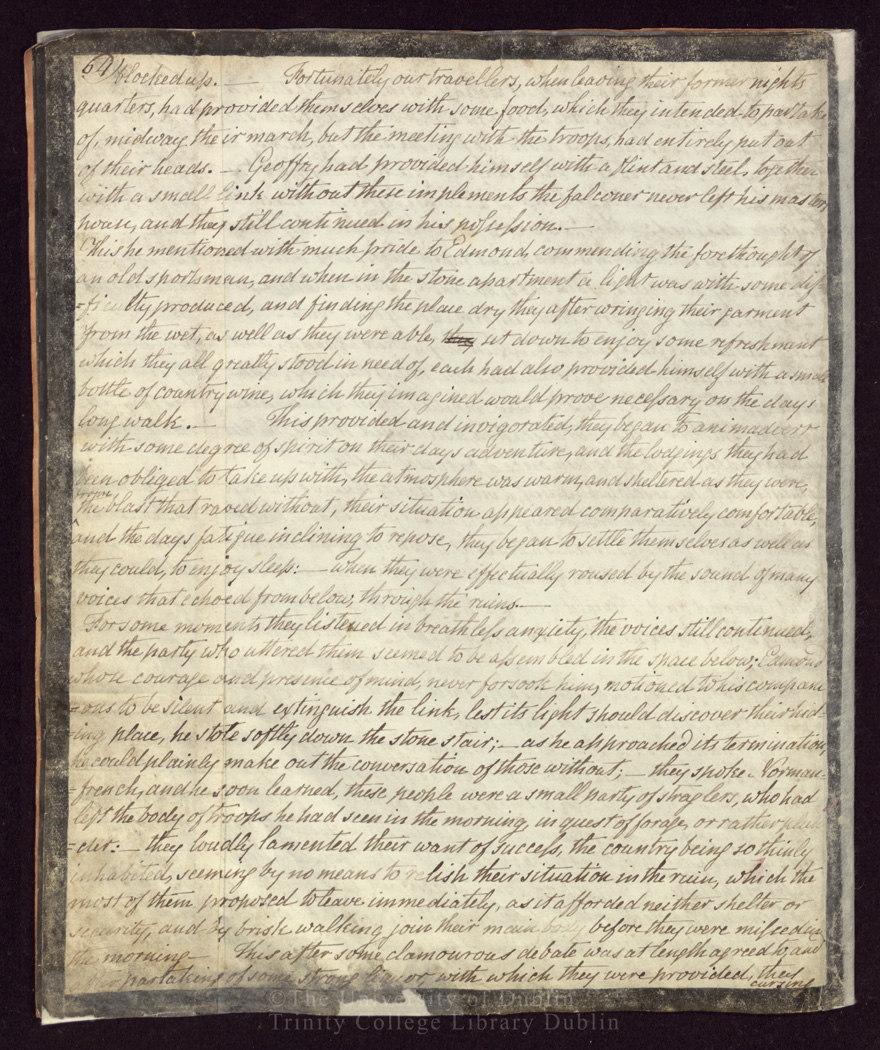 64
blocked up. — Fortunately our travellers, when leaving their former nights
quarters, had provided themselves with some food, which they intended to partake
of, midway their march, but the meeting with the troops, had entirely put out
of their heads. — Geoffry had provided himself with a flint and steel, together
with a small link without these implements the falconer never left his masters
house, and they still continued in his poſseſsion. —
This he mentioned with much pride to Edmond, commending the forethought of
an old sportsman, and when in the stone apartment a light was with some dif
=ficulty produced, and finding the place dry they after wringing their garment
from the wet, as well as they were able, they sat down to enjoy some refreshment
which they all greatly stood in need of, each had also provided himself with a small
bottle of country wine, which they imagined would prove neceſsary on the days
long walk. — This provided and invigorated, they began to animadvert
with some degree of spirit on their days adventure, and the lodgings they had
been obliged to take up with, the atmosphere was warm, and sheltered as they were,
from
the blast that raved without, their situation appeared comparatively comfortable,
and the days fatigue inclining to repose, they began to settle themselves as well as
they could, to enjoy sleep: — when they were effectually roused by the sound of many
voices that echoed from below, through the ruins. —
For some moments they listened in breathleſs anxiety, the voices still continued,
and the party who uttered them seemed to be aſsembled in the space below; Edmond
whose courage and presence of mind, never forsook him, motioned to his compani
=ons to be silent and extinguish the link, lest its light should discover their hid=
=ing place, he stole softly down the stone stair; — as he approached its termination,
he could plainly make out the conversation of those without; — they spoke Norman
=french, and he soon learned, these people were a small party of straglers, who had
left the body of troops he had seen in the morning, in quest of forage, or rather plun
=der: — they loudly lamented their want of succeſs, the country being so thinly
inhabited, seeming by no means to relish their situation in the ruin, which the
most of them proposed to leave immediately, as it afforded neither shelter or
security, and by brisk walking join their main body before they were miſsed in
the morning — This after some clamourous debate was at length agreed to, and
partaking of some strong liquor, with which they were provided, they
cursing
© The University of Dublin
Trinity College Library Dublin